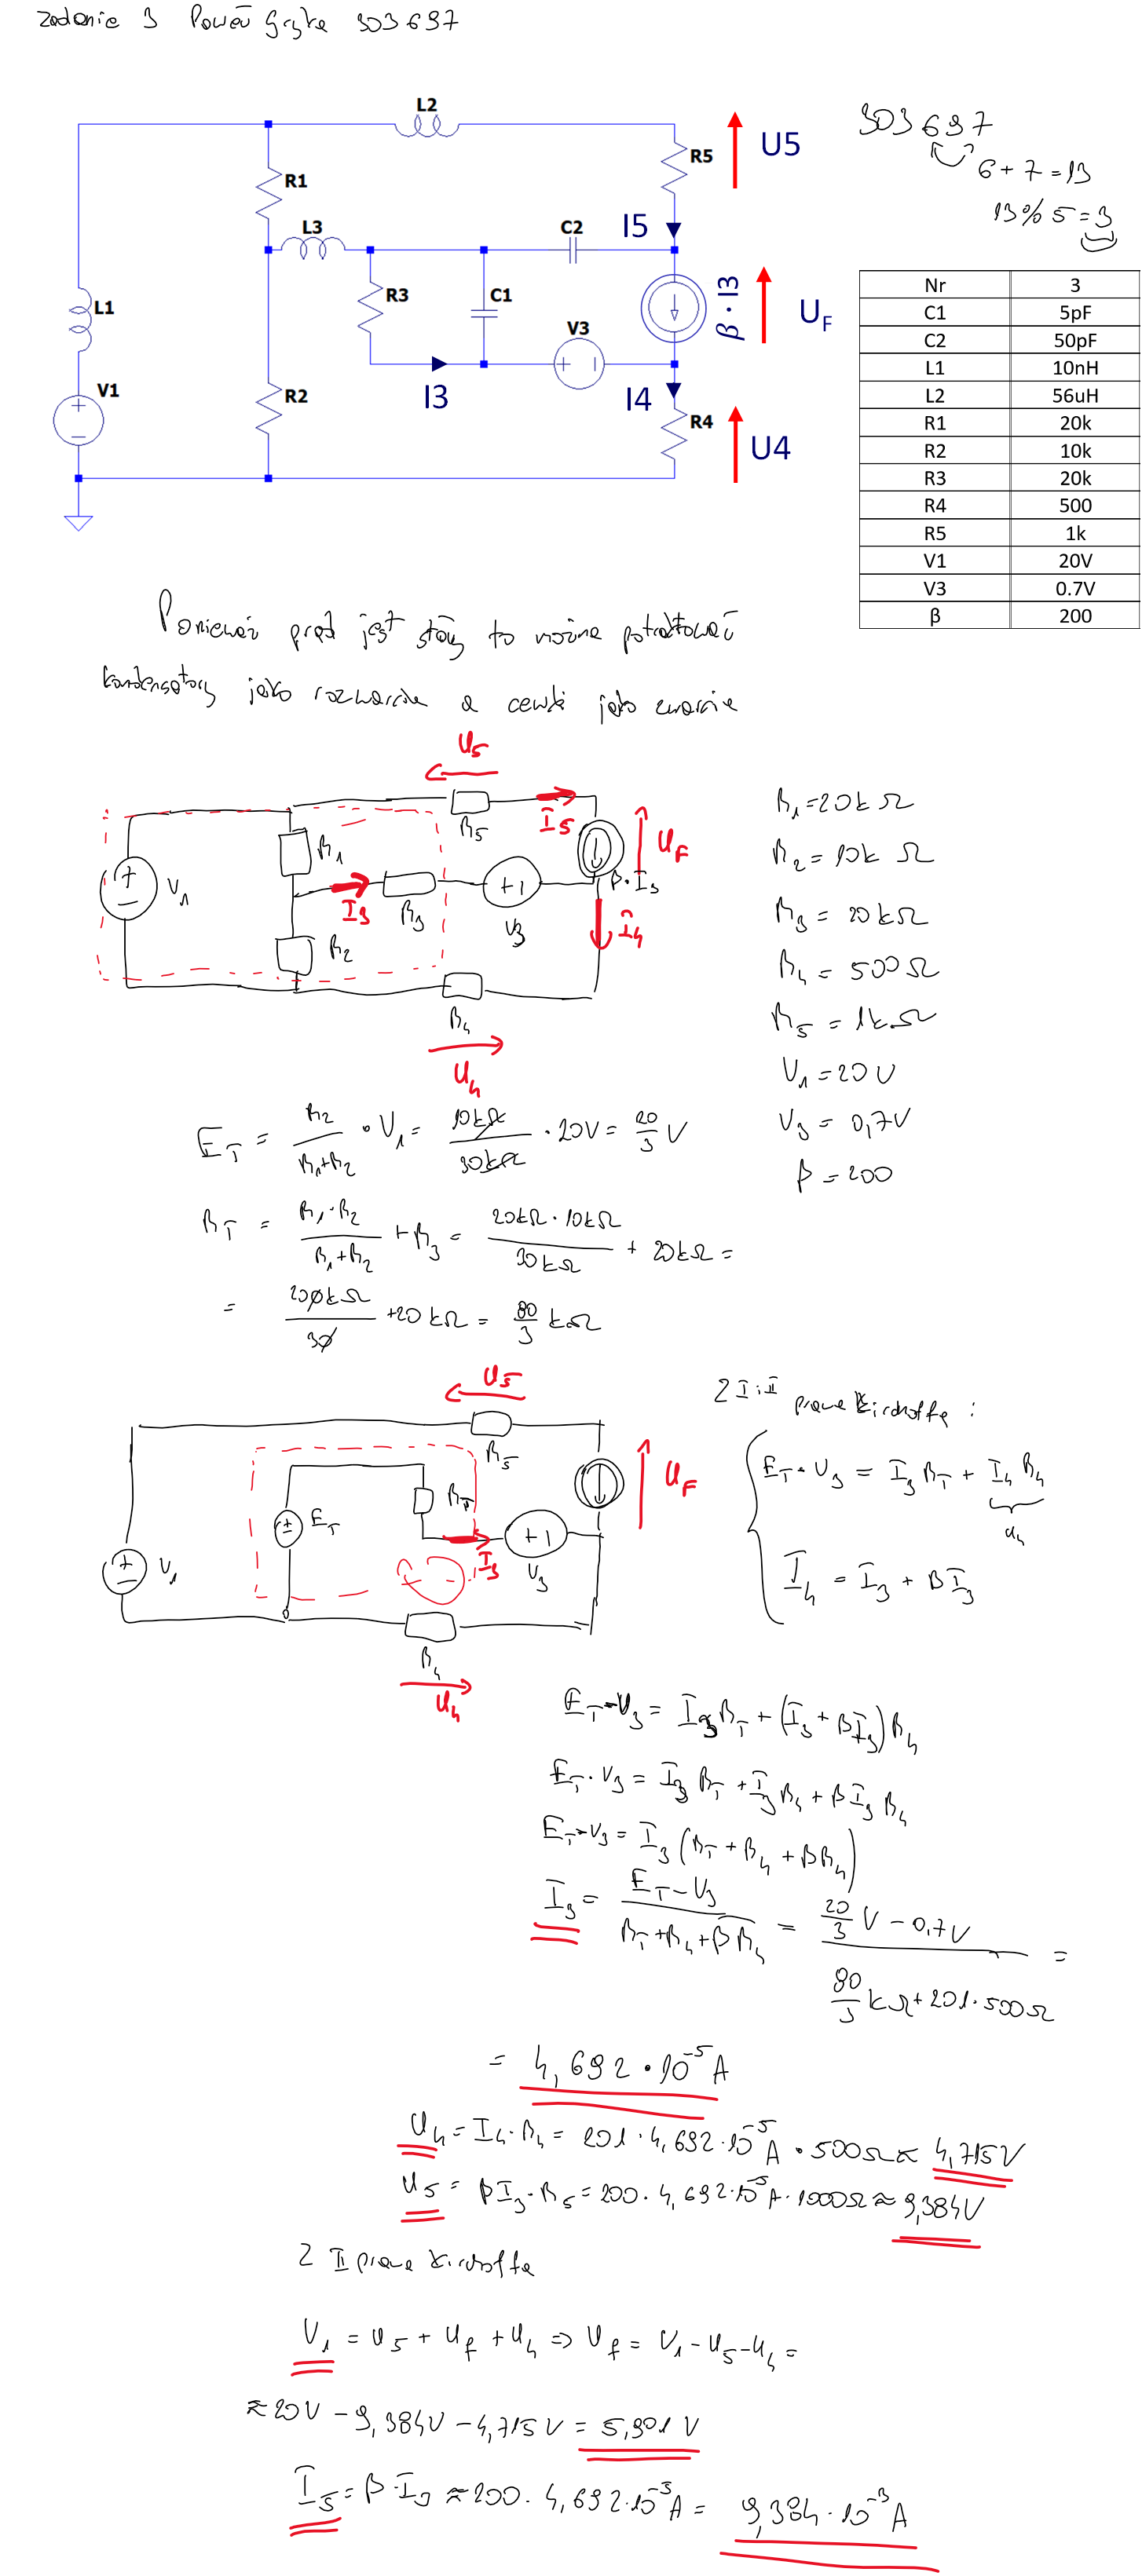 Zadanie 3 Paweł Gryka 303697
L2
U5
R5
303697
6+7=13
13%5=3
R1
L3
C2
I5
R3
C1
β·I3
UF
L1
V3
V1
R2
I3
I4
R4
U4
Nr 3
C1 5pF
C2 50pF
L1 10nH
L2 56uH
R1 20k
R2 10k
R3 20k
R4 500
R5 1k
V1 20V
V3 0.7V
β 200
Ponieważ prąd jest stały to można potraktować
kondensatory jako rozwarcie a cewki jako zwarcie
U5
R5 I5
UF
R1
V1
β·I3
I3 R3 V3 I4
R2
R4
U4
R1=20kΩ
R2=10kΩ
R3=20kΩ
R4=500Ω
R5=1kΩ
V1=20V
V3=0,7V
β=200
ET = R2/(R1+R2) · V1 = 10kΩ/30kΩ · 20V = 20/3 V
RT = R1·R2/(R1+R2) + R3 = 20kΩ·10kΩ/30kΩ + 20kΩ =
= 200kΩ/30 + 20kΩ = 80/3 kΩ
U5
R5
UF
RT
ET
I3 V3
V1
R4
U4
Z I i II prawa Kirchoffa:
ET-V3 = I3RT + I4R4
U4
I4 = I3 + βI3
ET-V3 = I3RT + (I3 + βI3)R4
ET-V3 = I3RT + I3R4 + βI3R4
ET-V3 = I3(RT + R4 + βR4)
I3 = (ET-V3)/(RT+R4+βR4) = (20/3 V - 0,7V)/(80/3 kΩ + 201·500Ω) =
= 4,692·10⁻⁵A
U4 = I4·R4 = 201·4,692·10⁻⁵A·500Ω ≈ 4,715V
U5 = βI3·R5 = 200·4,692·10⁻⁵A·1000Ω ≈ 9,384V
Z II prawa Kirchoffa
V1 = U5 + Uf + U4 => Uf = V1-U5-U4 =
≈ 20V - 9,384V - 4,715V = 5,901V
I5 = β·I3 ≈ 200·4,692·10⁻⁵A = 9,384·10⁻³A